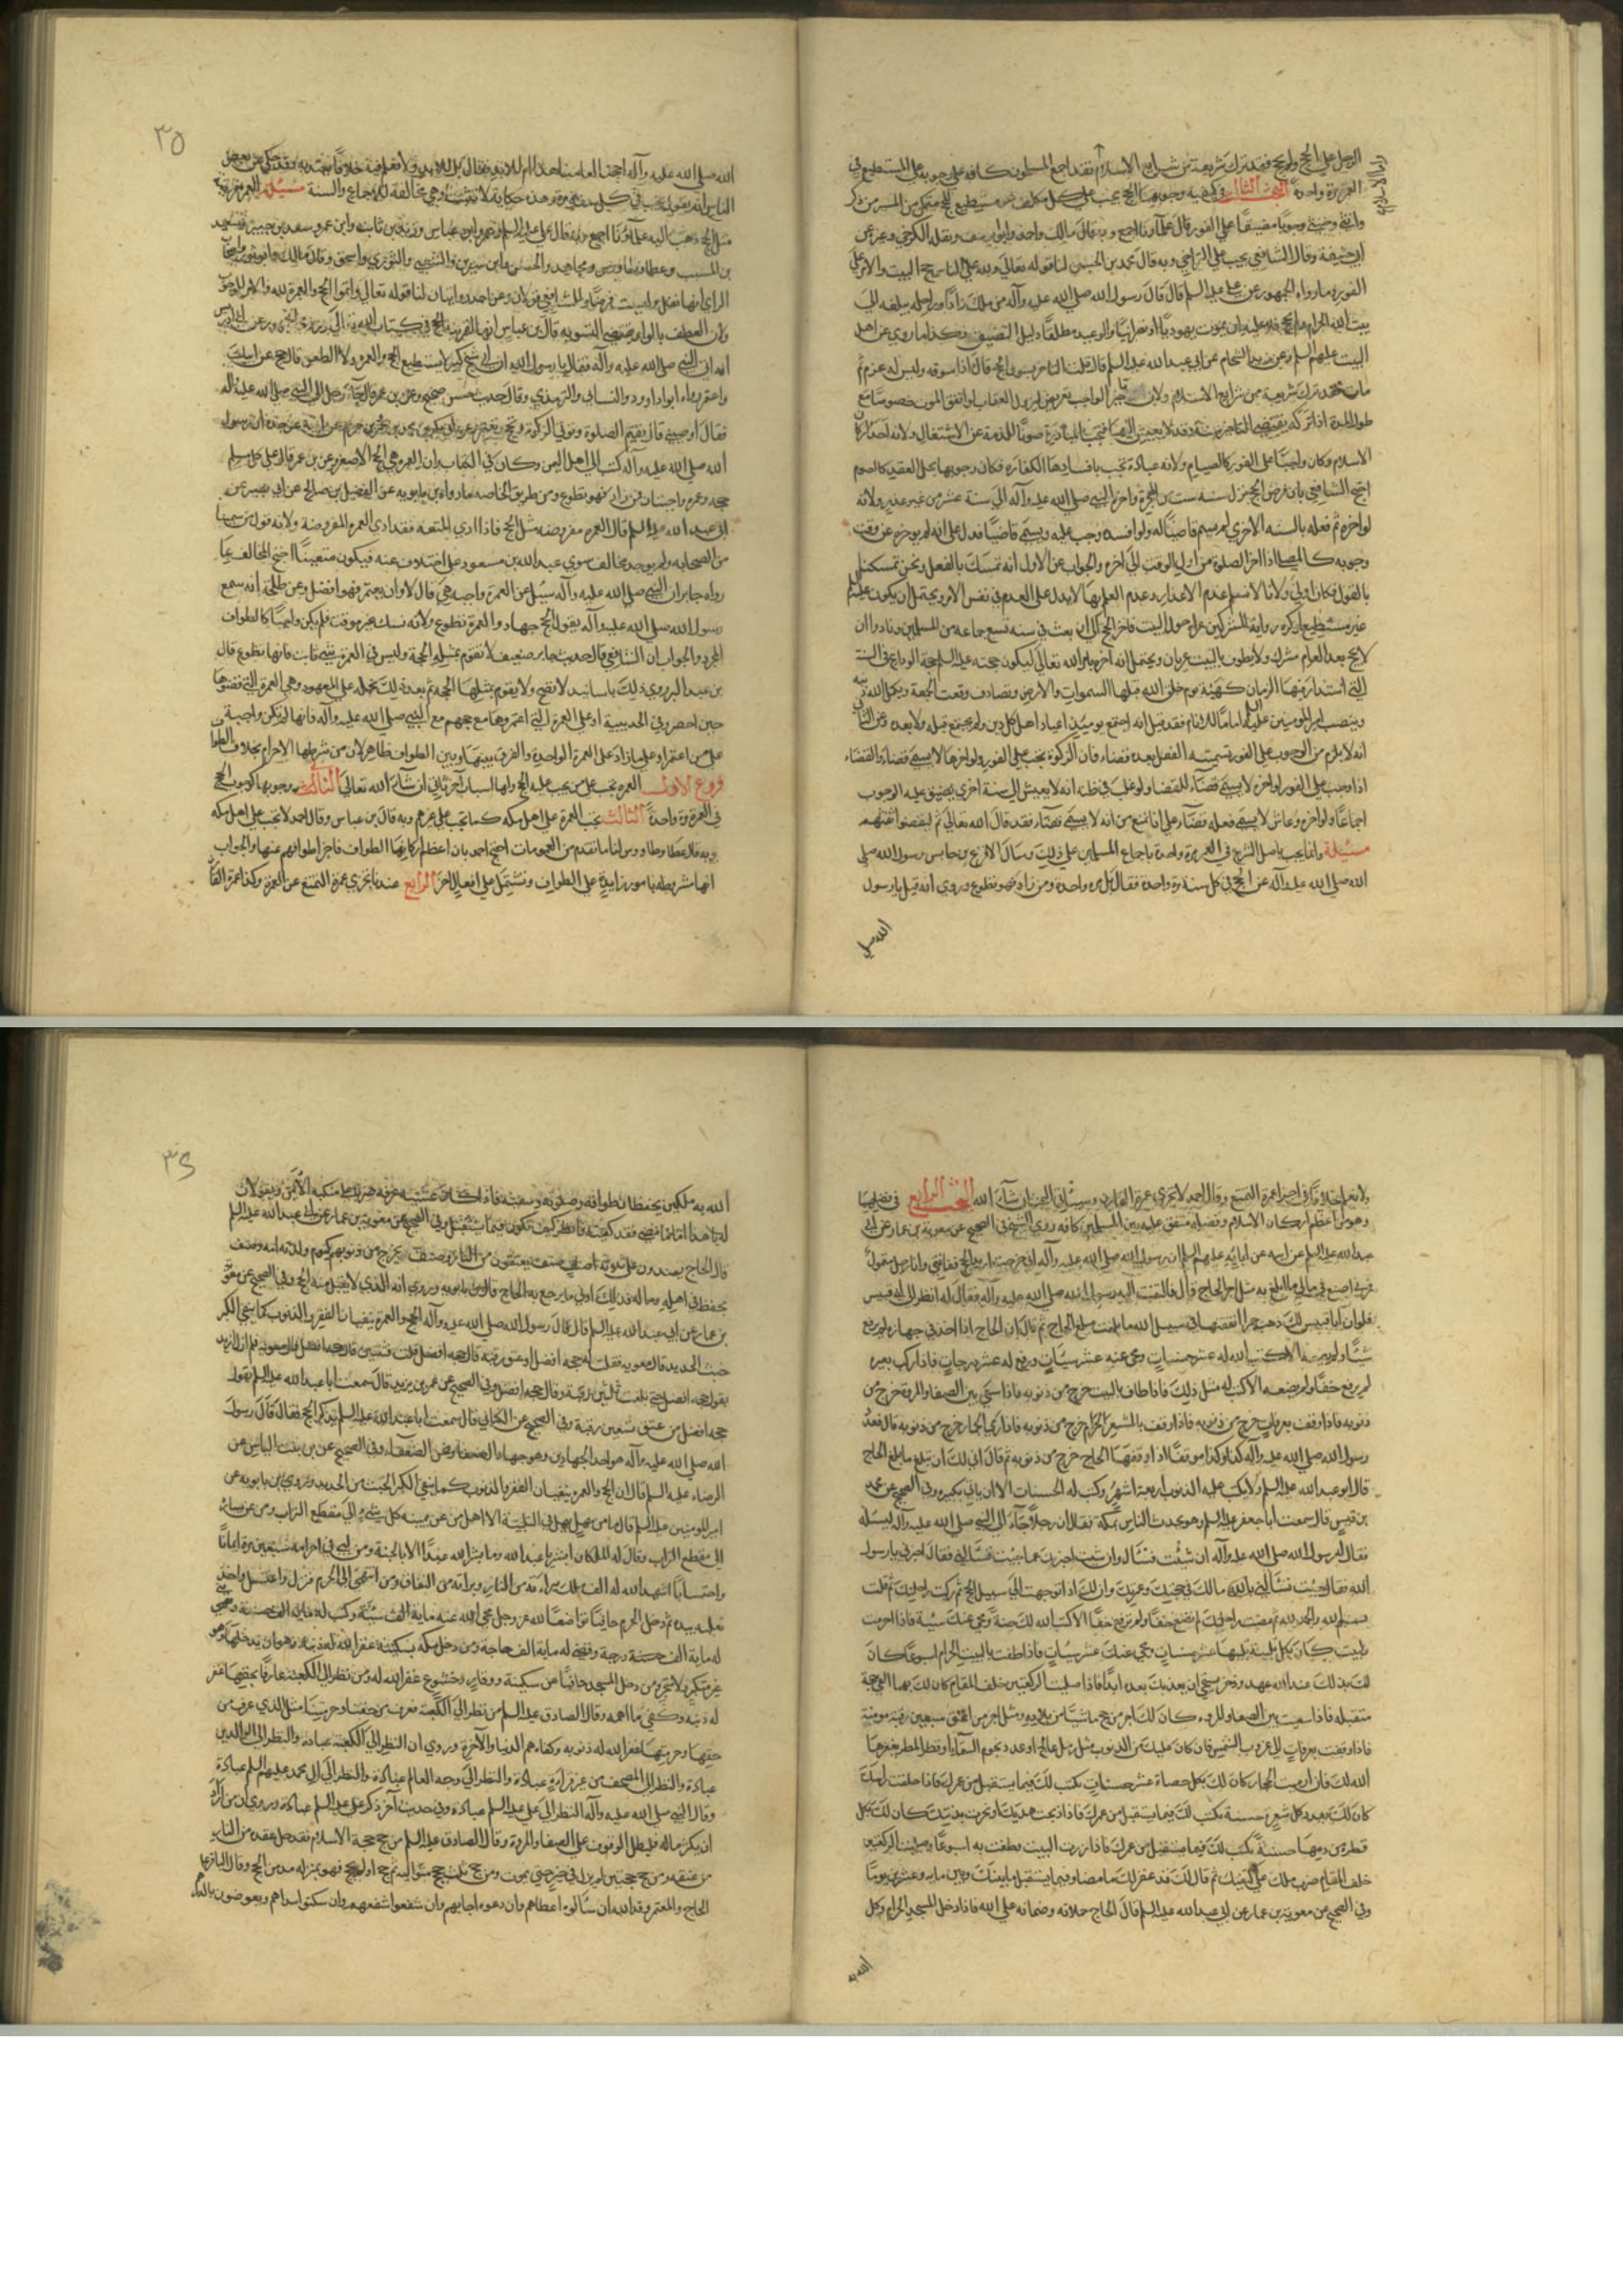 الرجل على الحج ولم يحج فقد ترك شريعة من شرايع الاسلام فقد اجمع المسلمون كافة على وجوبه على المستطيع في
العمر مرة واحدة البحث الثالث في كيفية وجوبهما الحج يجب على كل مكلف مستطيع للحج متمكن من المسير من ذكر
وانثى وخنثى وجوبا مضيقا على الفور قال علماؤنا اجمع وبه قال مالك واحمد وابو يوسف ونقله الكرخي وغيره عن
ابي حنيفة وقال الشافعي يجب على التراخي وبه قال محمد بن الحسن لنا قوله تعالى ولله على الناس حج البيت والامر على
الفور وما رواه الجمهور عن علي عليه السلم قال قال رسول الله صلى الله عليه وآله من ملك زادا وراحلة يبلغه الى
بيت الله الحرام ولم يحج فلا عليه ان يموت يهوديا او نصرانيا والوعيد مطلقا دليل التضييق وكذا ما روي عن اهل
البيت عليهم السلم وعن زيد الشحام عن ابي عبد الله عليه السلم قال قلت التاجر يسوف الحج قال اذا سوفه وليس له عزم ثم
مات فقد ترك شريعة من شرايع الاسلام ولان تاخير الواجب تعريض لنزول العقاب لو اتفق الموت خصوصا مع
طول المدة اذا تركه يقتضي التاخير سنة قد لا يعيش اليها فتجب المبادرة صونا للذمة عن الاشتغال ولانه احد اركان
الاسلام وكان واجبا على الفور كالصيام ولانه عبادة تجب بافسادها الكفارة فكان وجوبها بحل العقيد كالصوم
احتج الشافعي بان فرض الحج نزل سنة ست من الهجرة واخره النبي صلى الله عليه وآله الى سنة عشر من غير عذر ولانه
لو اخره ثم فعله بالسنة الاخرى لم يسم قاضيا له ولو افسده وجب عليه ويسمى قاضيا فدل على انه لم يوخره عن وقت
وجوبه كالمصلي اذا اخر الصلوة من اول الوقت الى اخره والجواب عن الاول انه تمسك بالفعل ونحن تمسكنا
بالقول فكان اولى ولانا لا نسلم عدم الاعذار وعدم العلم بها لا يدل على العدم في نفس الامر ويحتمل ان يكون عليه السلم
غير مستطيع او كره رؤية المشركين عراة حول البيت فاخر الحج الى ان بعث في سنة تسع جماعة من المسلمين ونادوا ان
لا يحج بعد العام مشرك ولا يطوف بالبيت عريان ويحتمل انه اخره بامر الله تعالى ليكون حجته عليه السلم حجة الوداع في السنة
التي استدار فيها الزمان كهيئة يوم خلق الله فيها السموات والارض وتصادف وقفت الجمعة ويكمل الله دينه
وينصب امير المومنين عليه السلم اماما للانام فقد قيل انه اجتمع يوميئذ اعياد اهل كل دين ولم يجتمع قبله ولا بعده وعن الثاني
انه لا يلزم من الوجوب على الفور تسمية الفعل بعده قضاء فان الزكوة تجب على الفور ولو اخرها لا يسمى قضاء والقضاء
اذا وجب على الفور لو اخره لا يسمى قضاء للقضاء ولو غلب في ظنه انه لا يعيش الى سنة اخرى يضيق عليه الوجوب
اجماعا ولو اخره وعاش لا يسمى فعله قضاء على انا نمنع من انه لا يسمى قضاء فقد قال الله تعالى ثم ليقضوا تفثهم
مسئلة وانما يجب باصل الشرع في العمر مرة واحدة باجماع المسلمين على ذلك وسال الاقرع بن حابس رسول الله صلى
الله صلى الله عليه وآله عن الحج في كل سنة مرة واحدة فقال بل مرة واحدة ومن زاد فهو تطوع وروي انه قيل يا رسول
الله صلى
٣٥
الله صلى الله عليه وآله احجتنا لعامنا هذا ام للابد فقال بل للابد ولا نعلم فيه خلافا يعتد به وقد حكي عن بعض
الناس انه يقول يجب في كل سنة مرة وهذه حكاية لا تثبت وهي مخالفة للاجماع والسنة مسئلة العمرة فريضة
مثل الحج ذهب اليه علماؤنا اجمع وبه قال علي عليه السلم وعمر وابن عباس وزيد بن ثابت وابن عمر وسعيد بن جبير وسعيد
بن المسيب وعطا وطاوس ومجاهد والحسن وابن سيرين والشعبي والثوري واسحق وقال مالك وابو ثور واصحاب
الراي انها نفل وليست فرضا وللشافعي قولان وعن احمد روايتان لنا قوله تعالى واتموا الحج والعمرة لله والامر للوجوب
ولان العطف بالواو يقتضي التسوية قال بن عباس انها لقرينة الحج في كتاب الله
انه اتى النبي صلى الله عليه وآله فقال يا رسول الله ان ابي شيخ كبير لا يستطيع الحج والعمرة ولا الظعن قال حج عن ابيك
واعتمر رواه ابو داود والنسائي والترمذي وقال حديث حسن صحيح وعن بن عمر قال جاء رجل الى النبي صلى الله عليه وآله
فقال اوصيني قال تقيم الصلوة وتوتي الزكوة وتحج وتعتمر
الله صلى الله عليه وآله كتب الى اهل اليمن وكان في الكتاب وان العمرة هي الحج الاصغر وعن بن عمر قال على كل مسلم
حجة وعمرة واجبتان فمن زاد فهو تطوع ومن طريق الخاصة ما رواه بن بابويه عن المفضل بن صالح عن ابي بصير عن
ابي عبد الله عليه السلم قال العمرة مفروضة مثل الحج فاذا ادى المتعة فقد ادى العمرة المفروضة ولانه قول من سمينا
من الصحابة ولم يوجد مخالف سوى عبد الله بن مسعود على اختلاف عنه فيكون متعينا احتج المخالف بما
رواه جابر ان النبي صلى الله عليه وآله سئل عن العمرة واجبة هي قال لا وان يعتمر فهو افضل وعن طلحة انه سمع
رسول الله صلى الله عليه وآله يقول الحج جهاد والعمرة تطوع ولانه نسك غير موقت فلم يكن واجبا كالطواف
المجرد والجواب ان الشافعي قال حديث جابر ضعيف لا تقوم بمثله الحجة وليس في العمرة شيء ثابت فانها تطوع قال
بن عبد البر روي ذلك باسانيد لا تصح ولا يقوم بمثلها الحجة ثم بعد ذلك نحمله على المعهود وهي العمرة التي قضوها
حين احصر في الحديبية او على العمرة التي اعتمروها مع حجهم مع النبي صلى الله عليه وآله فانها لم تكن واجبة
على من اعتمر او على ما زاد على العمرة الواحدة والفرق بينها وبين الطواف ظاهر لان من شرطها الاحرام بخلاف الطواف
فروع الاول العمرة تجب على من يجب عليه الحج ولها اسباب اخر تاتي ان شاء الله تعالى الثاني وجوبها كوجوب الحج
في العمر مرة واحدة الثالث تجب العمرة على اهل مكة كما تجب على غيرهم وبه قال بن عباس وقال احمد لا تجب على اهل مكة
وبه قال عطا وطاوس لنا ما تقدم من العمومات احتج احمد بان اعظم اركانها الطواف فاجزا طوافهم عنها والجواب
انها مشروطة بامور زايدة على الطواف وتشتمل على افعال اخر الرابع عندنا يجزي عمرة التمتع عن العمرة وكذا عمرة القارن
ولا نعلم خلافا في اجزا عمرة التمتع وقال احمد لا يجزي عمرة القارن وسيأتي البحث ان شاء الله البحث الرابع في فضلهما
وهو من اعظم اركان الاسلام وفضله متفق عليه بين المسلمين كافة روى الشيخ في الصحيح عن معوية بن عمار عن ابي
عبد الله عليه السلم عن ابيه عن آبائه عليهم السلم ان رسول الله صلى الله عليه وآله
اصنع في مالي ما ابلغ به مثل اجر الحاج قال فالتفت اليه رسول الله صلى الله عليه وآله فقال له انظر الى ابي قبيس
فلو ان ابا قبيس لك ذهبة حمرا انفقتها في سبيل الله ما بلغت مبلغ الحاج ثم قال ان الحاج اذا اخذ في جهازه لم يرفع
شيا ولم يضعه الا كتب الله له عشر حسنات ومحى عنه عشر سيات ورفع له عشر درجات فاذا ركب بعيره
لم يرفع خفا ولم يضعه الا كتب له مثل ذلك فاذا طاف بالبيت خرج من ذنوبه فاذا سعى بين الصفا والمروة خرج من
ذنوبه فاذا وقف بعرفات خرج من ذنوبه فاذا وقف بالمشعر الحرام خرج من ذنوبه فاذا رمى الجمار خرج من ذنوبه قال فعد
رسول الله صلى الله عليه وآله كذا وكذا موقفا اذا وقفها الحاج خرج من ذنوبه ثم قال انى لك ان تبلغ ما بلغ الحاج
قال ابو عبد الله عليه السلم ولا يكتب عليه الذنوب اربعة اشهر وكتب له الحسنات الا ان ياتي بكبيرة وفي الصحيح عن محمد
بن قيس قال سمعت ابا جعفر عليه السلم وهو يحدث الناس بمكة فقال ان رجلا جاء الى النبي صلى الله عليه وآله ليسئله
فقال له رسول الله صلى الله عليه وآله ان شئت فسال وان شئت اخبرتك عما جئت تسالني فقال اخبرني يا رسول
الله فقال جئت تسالني مالك في حجتك وعمرتك وان لك اذا توجهت الى سبيل الحج ثم ركبت راحلتك ثم قلت
بسم الله والحمد لله ثم مضت راحلتك لم تضع خفا ولم ترفع خفا الا كتب الله لك حسنة ومحى عنك سيئة فاذا احرمت
ولبيت كان بكل تلبية عشر حسنات ومحى عنك عشر سيات فاذا طفت بالبيت الحرام اسبوعا كان
لك بذلك عند الله عهد وذخر يستحي ان يعذبك بعده ابدا فاذا صليت الركعتين خلف المقام كان لك بهما الفي حجة
متقبلة فاذا سعيت بين الصفا والمروة كان لك اجر من حج ماشيا من بلاده ومثل اجر من اعتق سبعين رقبة مومنة
فاذا وقفت بعرفات الى غروب الشمس فان كان عليك من الذنوب مثل رمل عالج او عدد نجوم السماء او قطر المطر يغفرها
الله لك فاذا رميت الجمار كان لك بكل حصاة عشر حسنات يكتب لك فيما يستقبل من عمرك فاذا حلقت راسك
كان لك بعدد كل شعرة حسنة يكتب لك فيما يستقبل من عمرك فاذا ذبحت هديك او نحرت بدنتك كان لك بكل
قطرة من دمها حسنة يكتب لك فيما يستقبل من عمرك فاذا زرت البيت وطفت به اسبوعا وصليت الركعتين
خلف المقام ضرب ملك على كتفيك ثم قال لك قد غفر لك ما مضى وفيما يستقبل ما بينك وبين ماية وعشرين يوما
وفي الصحيح عن معوية بن عمار عن ابي عبد الله عليه السلم قال الحاج حملانه وضمانه على الله فاذا دخل المسجد الحرام وكل
الله به
٣٦
الله به ملكين يحفظان طوافه وصلوته وسعيه فاذا كان عشية عرفة ضربا على منكبه الايمن ويقولان
له يا هذا اما ما مضى فقد كفيته فانظر كيف تكون فيما يستقبل وفي الصحيح عن معوية بن عمار عن ابي عبد الله عليه السلم
قال الحاج يصدرون على ثلاثة اصناف صنف يعتقون من النار وصنف يخرج من ذنوبه كيوم ولدته امه وصنف
يحفظ في اهله وماله فذلك ادنى ما يرجع به الحاج قال بن بابويه وروي انه الذي لا يقبل منه الحج وفي الصحيح عن معوية
بن عمار عن ابي عبد الله عليه السلم قال قال رسول الله صلى الله عليه وآله الحج والعمرة ينفيان الفقر والذنوب كما ينفي الكير
خبث الحديد قال معوية فقلت له حجة افضل او عتق رقبة قال حجة افضل قلت فثنتين قال حجة افضل قال معوية فلم ازل ازيد
يقول حجة افضل حتى بلغت ثلثين رقبة وقال حجة افضل وفي الصحيح عن عمر بن يزيد قال سمعت ابا عبد الله عليه السلم يقول
حجة افضل من عتق سبعين رقبة وفي الصحيح عن الكناني قال سمعت ابا عبد الله عليه السلم يذكر الحج فقال قال رسول
الله صلى الله عليه وآله هو احد الجهادين وهو جهاد الضعفاء ونحن الضعفاء وفي الصحيح عن بن بنت الياس عن
الرضاء عليه السلم قال ان الحج والعمرة ينفيان الفقر والذنوب كما ينفي الكير الخبث من الحديد وروى بن بابويه عن
امير المومنين عليه السلم قال ما من مهل يهل في التلبية الا اهل من عن يمينه كل شيء الى مقطع التراب ومن عن يساره
الى مقطع التراب وقال له الملكان ابشر يا عبد الله وما يبشر الله عبدا الا بالجنة ومن لبى في احرامه سبعين مرة ايمانا
واحتسابا اشهد الله له الف ملك ببراءة من النار وبراءة من النفاق ومن انتهى الى الحرم فنزل واغتسل واخذ
نعليه بيده ثم دخل الحرم حافيا تواضعا لله عز وجل محى الله عنه ماية الف سيئة وكتب له ماية الف حسنة وبنى
له ماية الف درجة وقضى له ماية الف حاجة ومن دخل مكة بسكينة غفر الله له ذنبه وهو ان يدخلها وهو
غير متكبر ولا متجبر ومن دخل المسجد حافيا عن سكينة ووقار وخشوع غفر الله له ومن نظر الى الكعبة عارفا بحقها غفر
له ذنبه وكفى ما اهمه وقال الصادق عليه السلم من نظر الى الكعبة فعرف من حقنا وحرمتنا مثل الذي عرف من
حقها وحرمتها غفر الله له ذنوبه وكفاه هم الدنيا والآخرة وروي ان النظر الى الكعبة عبادة والنظر الى الوالدين
عبادة والنظر الى المصحف من غير قراءة عبادة والنظر الى وجه العالم عبادة والنظر الى آل محمد عليهم السلم عبادة
وقال النبي صلى الله عليه وآله النظر الى علي عليه السلم عبادة وفي حديث آخر ذكر علي عليه السلم عبادة وروي ان من اراد
ان يكثر ماله فليطل الوقوف على الصفا والمروة وقال الصادق عليه السلم من حج حجة الاسلام فقد حل عقده من النار
من عنقه ومن حج حجتين لم يزل في خير حتى يموت ومن حج ثلث حجج متوالية ثم حج او لم يحج فهو بمنزلة مدمن الحج وقال الباقر عليه
الحاج والمعتمر وفد الله ان سالوه اعطاهم وان دعوه اجابهم وان شفعوا شفعهم وان سكتوا ابتداهم ويعوضون بالدرهم